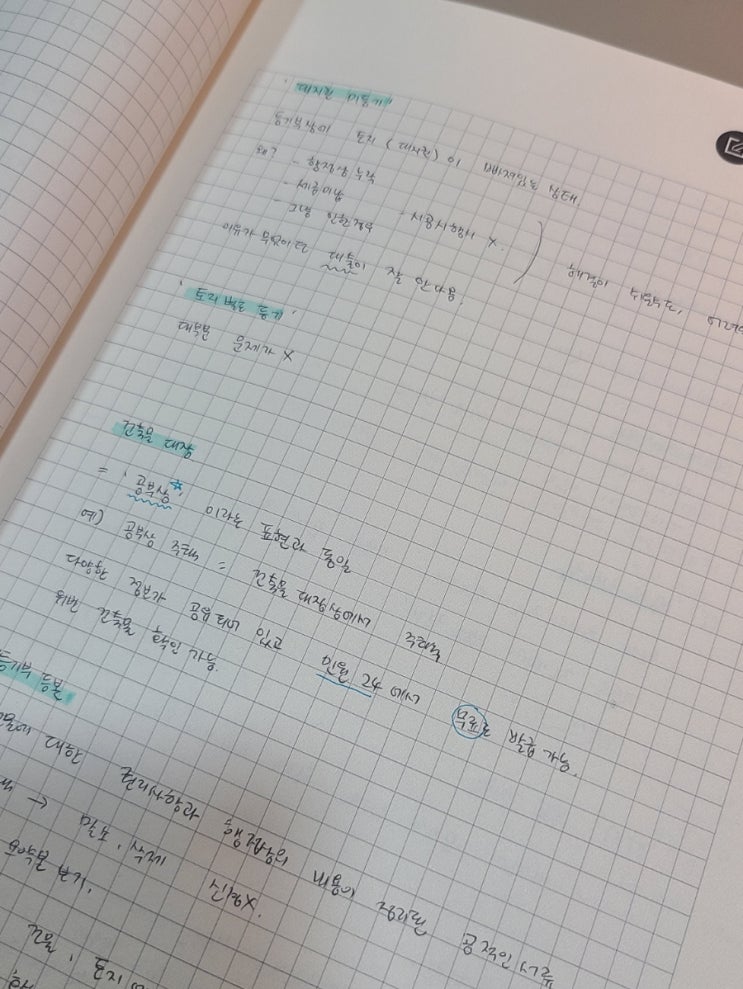 ' 대지권 미등기 "
등기부상이 토지 (대지권) 이 빠져있는 상태.
왜? - 행정상 누락
- 세금미납
- 그냥 안한경우 - 시공시행사 X.
해결이 쉬울수도,
이유가 무엇이던 대출이 잘 안나옴.
' 토지 별도 등기 '
대부분 문제가 X
건축물 대장
= ' 공부상 ' 이라는 표현과 동일
예) 공부상 주택 = 건축물 대장상에서 주택
다양한 정보가 공유되어 있고 민원 24 에서 무료로 발급 가능.
위반 건축물 확인 가능.
등기부 등본
대한 권리사항과 내용이 정리된 공적인 서류
말소, 삭제 신청X.
건물, 토지